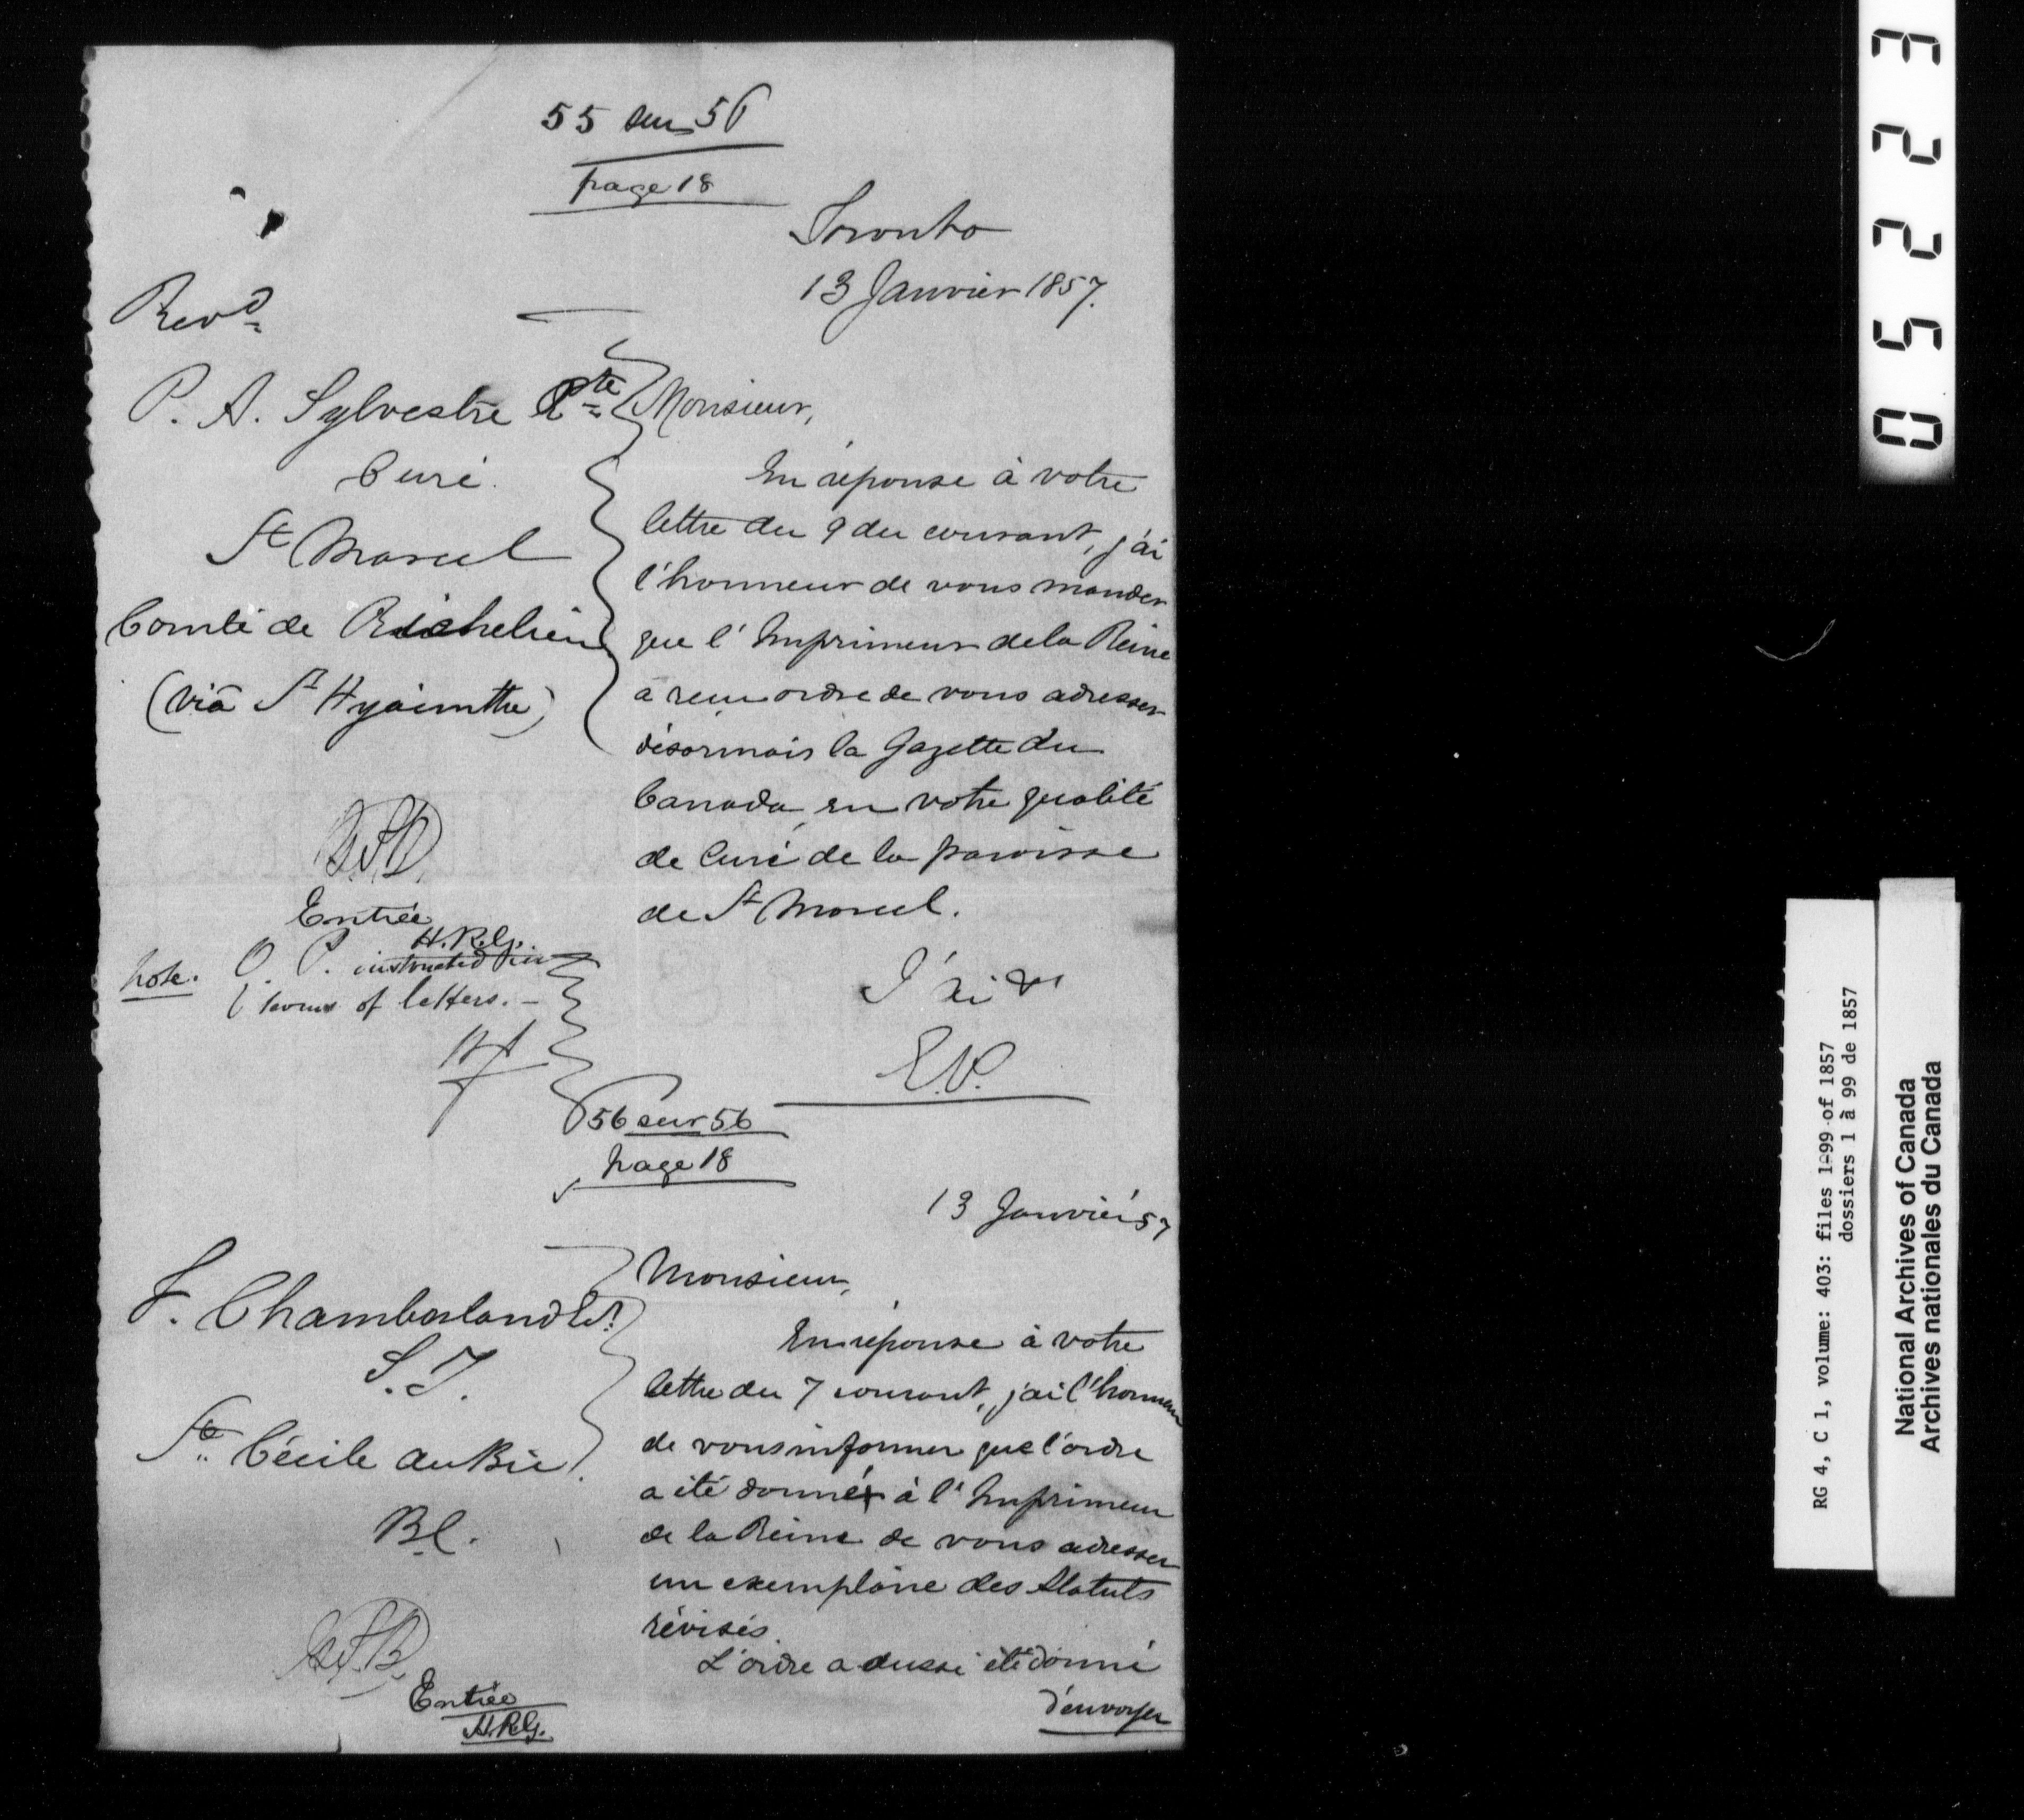 55 sur 56
page 18
Toronto
13 Janvier 1857.
Revd
P. A. Sylvestre Ptre
Curé.
St Marcel
Comté de Richelieu
(viâ St Hyacinthe)
Monsieur,
En réponse à votre
lettre du 9 du courant, j'ai
l'honneur de vous mander
que l'Imprimeur de la Reine
a reçu ordre de vous adresser
désormais la Gazette du
Canada, en votre qualité
de Curé de la paroisse
de St Marcel.
J'ai &c
E.P.
Entrée
H.R.G.
note. Q. P. instructed in
terms of letters. —
56 sur 56
page 18
13 Janvier 57
F. Chamberland
S. J.
Ste Cécile du Bic.
B.C.
Monsieur,
En réponse à votre
lettre du 7 courant, j'ai l'honneur
de vous informer que l'ordre
a été donné à l'Imprimeur
de la Reine de vous adresser
un exemplaire des Statuts
révisés.
L'ordre a aussi été donné
d'envoyer
Entrée
H.R.G.
05223
RG 4, C 1, volume: 403: files 1-99 of 1857
dossiers 1 à 99 de 1857
National Archives of Canada
Archives nationales du Canada